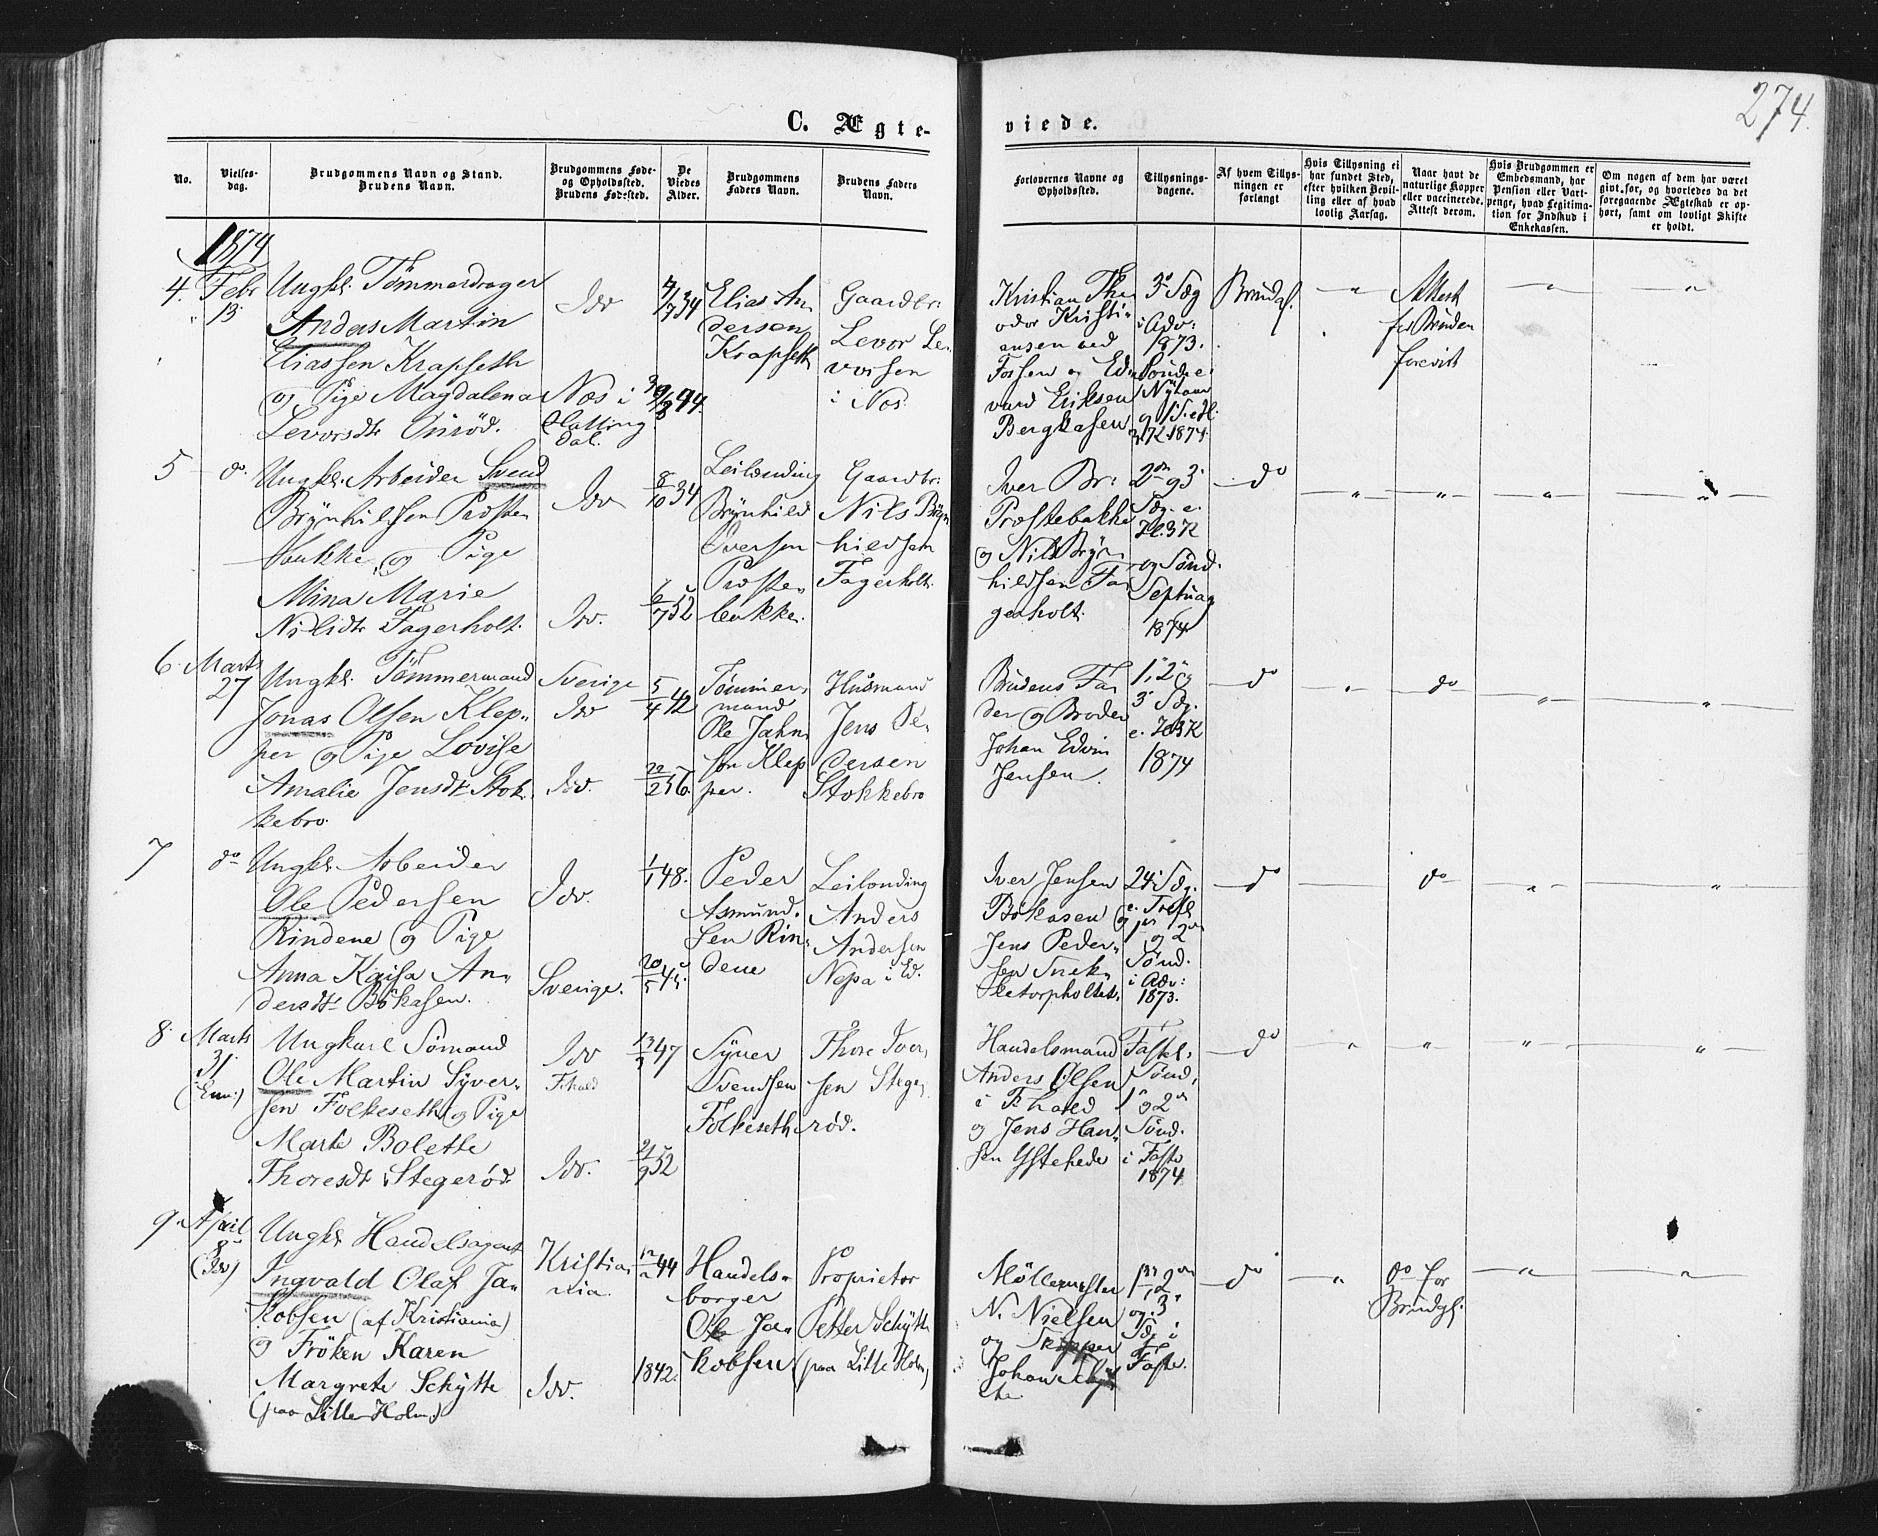 274.
C. Ægte-
viede.
No.
Vielses-
dag.
Brudgommens Navn og Stand.
Brudens Navn.
Brudgommens Føde-
og Opholdssted.
Brudens Fødested.
De
Viedes
Alder.
Brudgommens
Faders Navn.
Brudens Faders
Navn.
Forlovernes Navne og
Opholdssted.
Tillysnings-
dagene.
Af hvem Tillys-
ningen er
forlangt
Hvis Tillysning ei
har fundet Sted,
efter hvilken Bevil-
ling eller af hvad
lovlig Aarsag.
Naar havt de
naturlige Kopper
eller vaccinerede.
Attest derom.
Hvis Brudgommen er
Embedsmand, har
Pension eller Vart-
penge, hvad Legitima-
tion for Indskud i
Enkekassen.
Om nogen af dem har været
givt for, og hvorledes da det
foregaaende Ægteskab er op-
hørt, samt om lovligt Skifte
er holdt.
1874
4. Febr
13.
Ungkl. Tömmerdrager
Anders Martin
Eliassen Krapseth
og Pige Magdalena
Levorsdtr
Idv
Næs i
Halling
dal.
34
44.
Elias An
dersen
Krapseth
Gaardbr:
Levor Le-
vorsen
i Næs.
Kristian The
odor Kristi-
ansen ved
Fossen og Ed-
vard Eriksen
Bergkasen
3die Søg
i Adv:
1873.
Nytaar
1874.
Brudgf.
"
Attest
for Bruden
forevist
"
"
5 do
Ungkl. Arbeider Svend
Brynhildsen Præste-
bakke og Pige
Mina Marie
Nilsdtr Fagerholt.
Idv
Idv.
8/10 34
6/7 52
Leilænding
Brynhild
Iversen
Præste-
bakke.
Gaardbr:
Nils Bryn
hildsen
Fagerholt.
Iver Br:
Præstebakke
og Nils Bryn-
hildsen Fa-
gerholt.
2den og 3
Søg. e.
H.3K
og Sönd.
Septuag
1874
do
"
"
"
"
6. Marts
27
Ungkl. Tömmermand
Jonas Olsen Klep-
per og Pige Lovise
Amalie Jensdtr Stok-
kebro.
Sverige
Idv
Idv.
5/4 42
22/2 56.
Tömmer-
mand
Ole Jahn-
sen Klep
per.
Husmand
Jens Pe-
dersen
Stokkebro
Brudens Fa
der og Broder
Johan Edvin
Jensen.
1, 2 og
3 Søg.
e. H3K
1874
do
"
do
"
"
7 do
Ungkl. Arbeider
Ole Pedersen
Rindene og Pige
Anna Kajsa An-
dersdtr Bökasen.
Idv.
Sverige.
1/1 48.
20/5 45.
Peder
Asmund-
sen Rin-
dene
Leilænding
Anders
Andersen
Iver Jensen
Bökasen og
Jens Peder-
sen
24 Søg.
e. Tref.
1ste og 2den
Sönd.
i Adv:
1873.
do
do
"
"
8. Marts
31.
Ungkarl Sömand
Ole Martin Syver-
sen Folkeseth og Pige
Marte Bolette
Thoresdtr Stegeröd
Idv
Fr:hald
Idv.
47
52
Syver
Svendsen
Folkeseth
Thore Iver-
sen Stege-
röd.
Handelsmand
Anders Olsen
i Fr:hald
og Jens Han-
sen Ystehede
Fastel.
Sönd,
1ste og 2den
Sönd.
i Faste
1874
do
"
"
"
"
9. April
8de
(Idv)
Ungkl. Handelsagent
Ingvald Olaf Ja-
kobsen (af Kristiania)
og Fröken Karen
Margrete Schytte
(paa Lille Holm)
Kristia-
nia.
Idv.
44
1842.
Handels-
borger
Ole Ja-
kobsen
Proprietær
Petter Schytte
(paa Lille Holm)
Möllemester
N. Nielsen
og Skipper
Johan Schyt
te.
1ste, 2den
og 3.
Søg i
Faste.
do
"
do for
Brudgf.
"
"